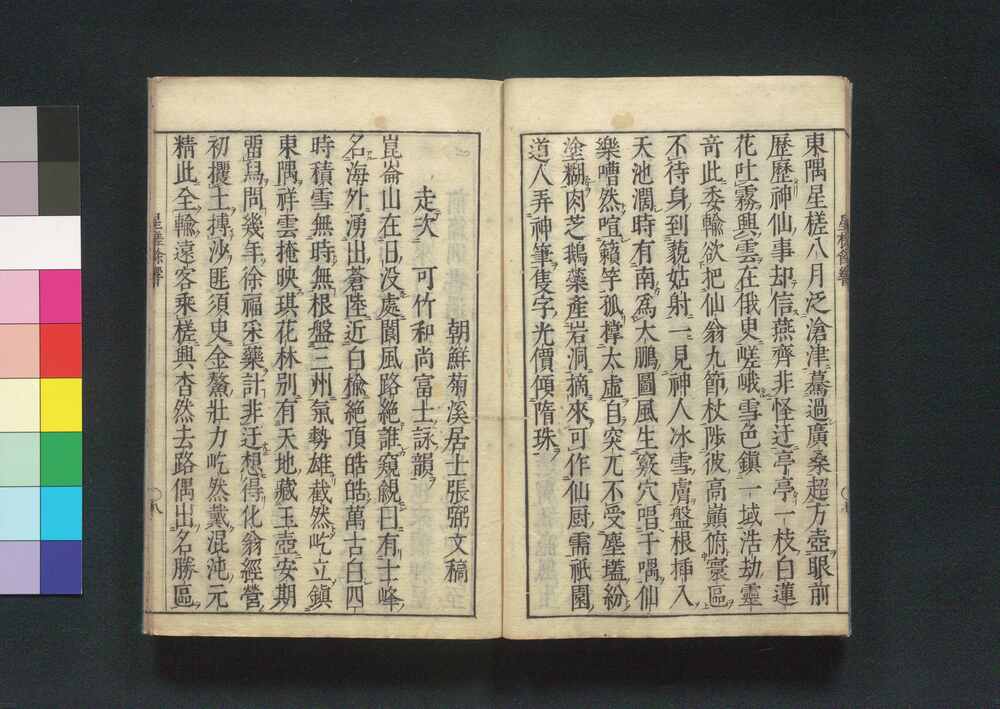 東隅星槎八月泛滄津驀過廣桑超方壺眼前
歷歷神仙事却信燕齊非怪迂亭亭一枝白蓮
花吐霧興雲在俄臾嵯峨雪色鎭一域浩劫靈
奇此委輸欲把仙翁九節杖陟彼高巓俯寰區
不待身到藐姑射一見神人冰雪膚盤根揷入
天池濶時有南爲大鵬圖風生竅穴唱于喁仙
樂嘈然喧籟竽孤撑太虛自突兀不受塵壒紛
塗糊肉芝鵝藥產岩洞摘來可作仙厨需祇園
道人弄神筆隻字光價傾隋珠
星槎餘響
朝鮮菊溪居士張弼文稿
走次 可竹和尚富士詠韻
崑崙山在日沒處閬風路絶誰窺覦曰有士峰
名海外湧出蒼陸近白楡絶頂皓皓萬古白四
時積雪無時無根盤三州氣勢雄截然屹立鎭
東隅祥雲掩映琪花林別有天地藏玉壺安期
留舃問幾年徐福采藥計非迂想得化翁經營
初攫土摶沙匪須臾金鰲壯力屹然戴混沌元
精此全輸遠客乘槎興杳然去路偶出名勝區
星槎餘響
八